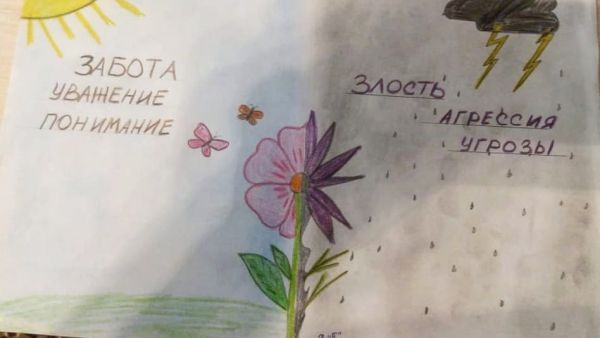 ЗАБОТА
УВАЖЕНИЕ
ПОНИМАНИЕ
ЗЛОСТЬ,
АГРЕССИЯ
УГРОЗЫ